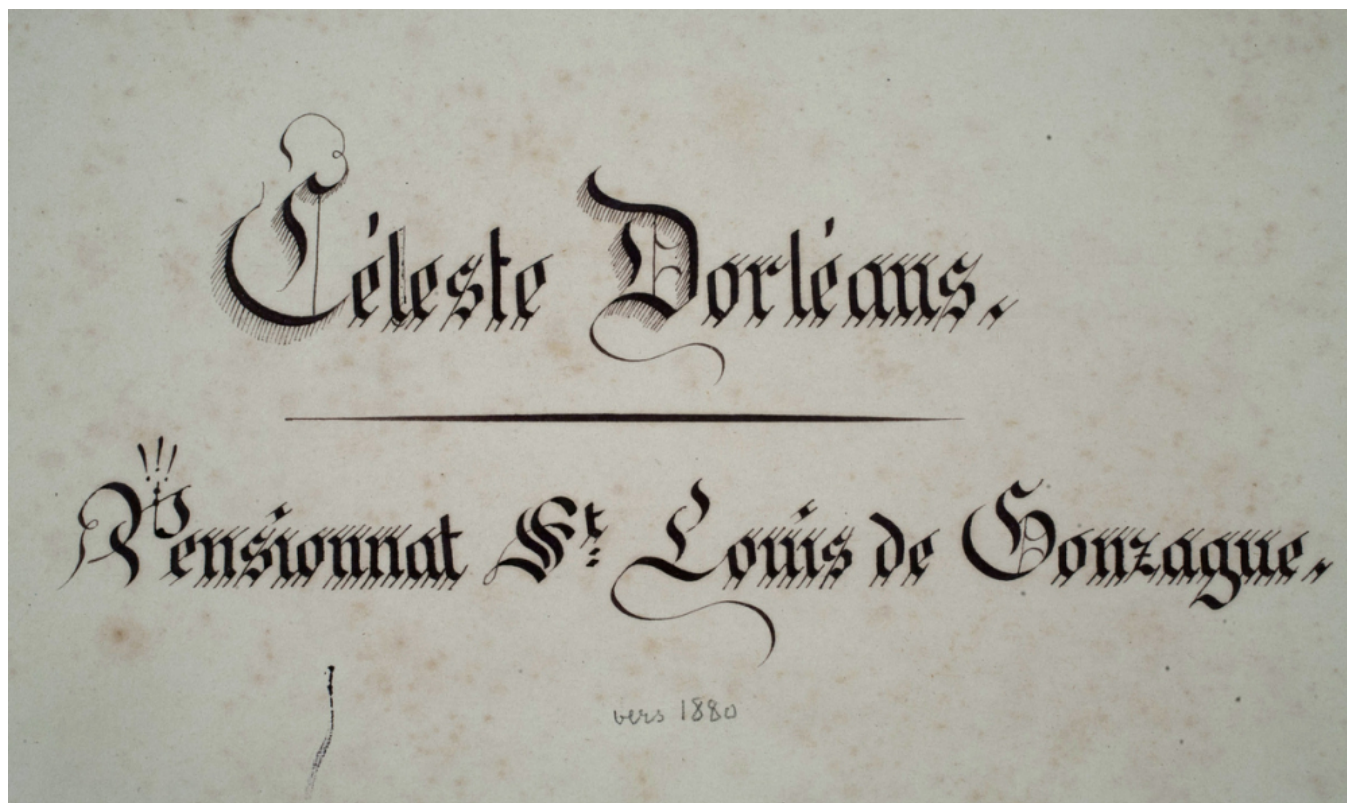 Céleste Dorléans.
Pensionnat St Louis de Gonzague.
vers 1880